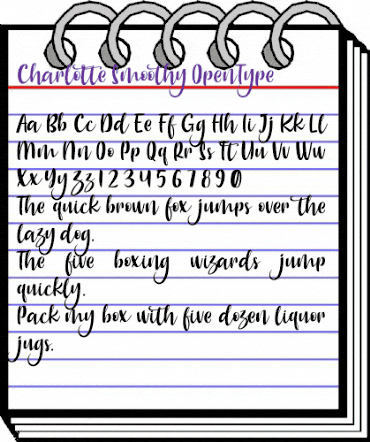 Charlotte Smoothy OpenType
Aa Bb Cc Dd Ee Ff Gg Hh Ii Jj Kk Ll
Mm Nn Oo Pp Qq Rr Ss Tt Uu Vv Ww
Xx Yy Zz 1 2 3 4 5 6 7 8 9 0
The quick brown fox jumps over the
lazy dog.
The five boxing wizards jump
quickly.
Pack my box with five dozen liquor
jugs.